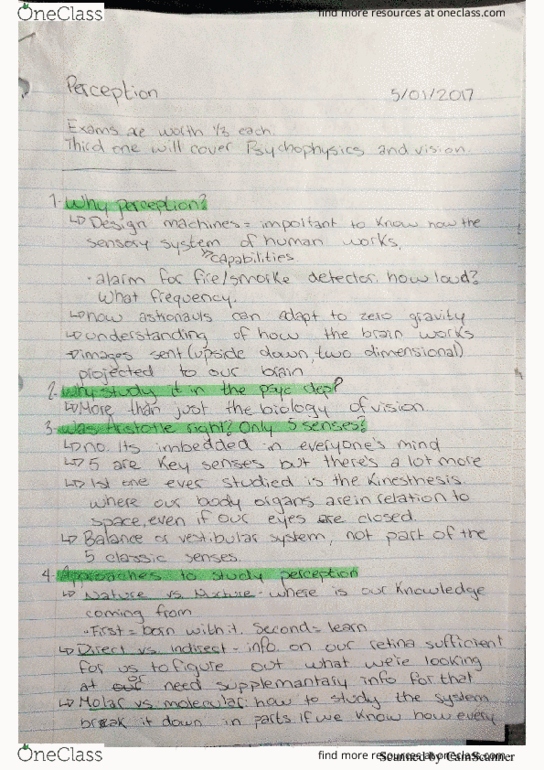 OneClass
find more resources at oneclass.com
Perception 5/01/2017
Exams are worth 1/3 each.
Third one will cover Psychophysics and vision.
1. Why perception?
↳ Design machines = important to know how the
sensory system of human works,
↳ capabilities
· alarm for fire/smoke detector. how loud?
What frequency.
↳ how astronauts can adapt to zero gravity
↳ understanding of how the brain works
→ images sent (upside down, two dimensional)
projected to our brain
2. Why study it in the psyc dep?
↳ More than just the biology of vision
3. Was Aristotle right? Only 5 senses?
↳ no. Its imbedded in everyone's mind
↳ 5 are key senses but there's a lot more
↳ 1st one ever studied is the Kinesthesis.
where our body organs are in relation to
space, even if our eyes are closed.
↳ Balance or vestibular system, not part of the
5 classic senses.
4. Approaches to study perception
↳ Nature vs. Nurture - where is our knowledge
coming from
· First = born with it. Second = learn
↳ Direct vs. Indirect - info. on our retina sufficient
for us to figure out what we're looking
at or need supplemantary info for that
↳ Molar vs. molecular: how to study the system
break it down in parts if we know how every
OneClass
find more resources at oneclass.com
Scanned by CamScanner